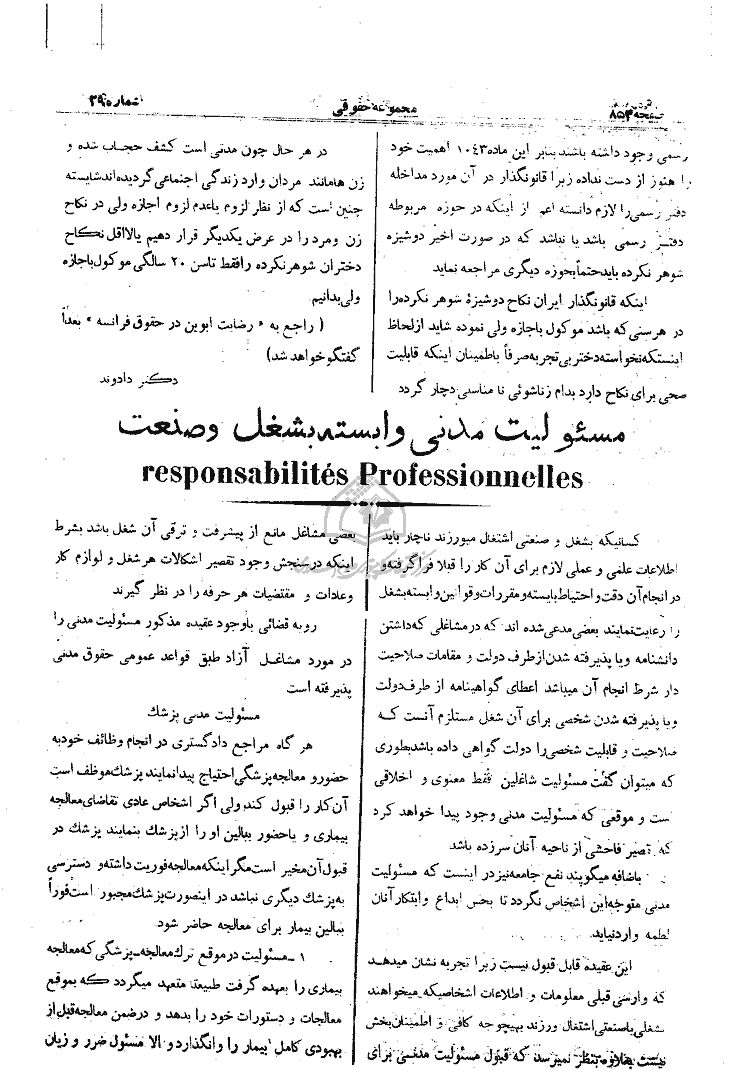 صفحه ۸۵۴
مجموعه حقوقی
شماره ۳۹
رسمی وجود داشته باشند بنابر این ماده ۱۰۴۳ اهمیت خود
را هنوز از دست نداده زیرا قانونگذار در آن مورد مداخله
دفتر رسمی را لازم دانسته اعم از اینکه در حوزه مربوطه
دفتر رسمی باشد یا نباشد که در صورت اخیر دوشیزه
شوهر نکرده باید حتماً بحوزه دیگری مراجعه نماید
اینکه قانونگذار ایران نکاح دوشیزهٔ شوهر نکرده را
در هر سنی که باشد موکول باجازه ولی نموده شاید از لحاظ
اینستکه نخواسته دختر بی تجربه صرفاً باطمینان اینکه قابلیت
صحی برای نکاح دارد بدام زناشوئی نا مناسبی دچار گردد
در هر حال چون مدنی است کشف حجاب شده و
زن ها مانند مردان وارد زندگی اجتماعی گردیده اند شایسته
چنین است که از نظر لزوم یا عدم لزوم اجازه ولی در نکاح
زن و مرد را در عرض یکدیگر قرار دهیم یا لااقل نکاح
دختران شوهر نکرده را فقط تا سن ۲۰ سالگی موکول باجازه
ولی بدانیم
( راجع به « رضایت ابوین در حقوق فرانسه » بعداً
گفتگو خواهد شد)
دکتر دادوند
مسئولیت مدنی وابسته بشغل وصنعت
responsabilités Professionnelles
کسانیکه بشغل و صنعتی اشتغال میورزند ناچار باید
اطلاعات علمی و عملی لازم برای آن کار را قبلا فرا گرفته و
در انجام آن دقت و احتیاط بایسته و مقررات و قوانین وابسته بشغل
را رعایت نمایند بعضی مدعی شده اند که در مشاغلی که داشتن
دانشنامه و یا پذیرفته شدن از طرف دولت و مقامات صلاحیت
دار شرط انجام آن میباشد اعطای گواهینامه از طرف دولت
و یا پذیرفته شدن شخصی برای آن شغل مستلزم آنست که
صلاحیت و قابلیت شخصی را دولت گواهی داده باشد بطوری
که میتوان گفت مسئولیت شاغلین فقط معنوی و اخلاقی
ست و موقعی که مسئولیت مدنی وجود پیدا خواهد کرد
که تقصیر فاحشی از ناحیه آنان سرزده باشد
باضافه میگویند نفع جامعه نیز در اینست که مسئولیت
مدنی متوجه این اشخاص نگردد تا بحس ابداع و ابتکار آنان
لطمه وارد نیاید.
این عقیده قابل قبول نیست زیرا تجربه نشان میدهد
که وارسی قبلی معلومات و اطلاعات اشخاصیکه میخواهند
بشغلی یا صنعتی اشتغال ورزند بهیچوجه کافی و اطمینان بخش
نیست بعلاوه بنظر نمیرسد که قبول مسئولیت مدنی برای
بعضی مشاغل مانع از پیشرفت و ترقی آن شغل باشد بشرط
اینکه در سنجش وجود تقصیر اشکالات هر شغل و لوازم کار
و عادات و مقتضیات هر حرفه را در نظر گیرند
رویه قضائی باوجود عقیده مذکور مسئولیت مدنی را
در مورد مشاغل آزاد طبق قواعد عمومی حقوق مدنی
پذیرفته است
مسئولیت مدنی پزشک
هر گاه مراجع دادگستری در انجام وظائف خود به
حضور و معالجه پزشگی احتیاج پیدا نمایند پزشک موظف است
آن کار را قبول کند، ولی اگر اشخاص عادی تقاضای معالجه
بیماری و یا حضور ببالین او را از پزشک بنمایند پزشک در
قبول آن مخیر است مگر اینکه معالجه فوریت داشته و دسترسی
به پزشک دیگری نباشد در اینصورت پزشک مجبور است فوراً
ببالین بیمار برای معالجه حاضر شود.
۱ - مسئولیت در موقع ترک معالجه - پزشگی که معالجه
بیماری را بعهده گرفت طبیعتاً متعهد میگردد که بموقع
معالجات و دستورات خود را بدهد و در ضمن معالجه قبل از
بهبودی کامل بیمار را وانگذارد و الا مسئول ضرر و زیان